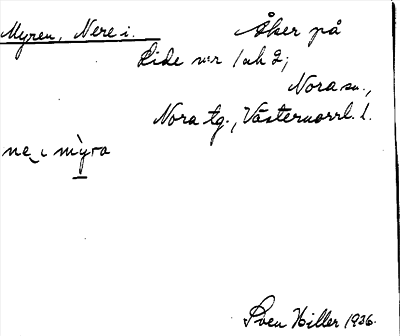 Myren, Nere i. Åker på
Lide n:r 1 och 2;
Nora sn.,
Nora tg., Västernorrl. l.
ne ̮ i mỳra
Sven Hiller 1936.